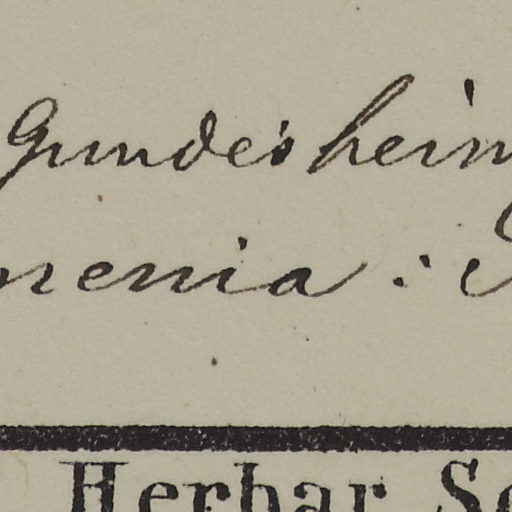 Gundesheim
nenia :
Herbar. Sc